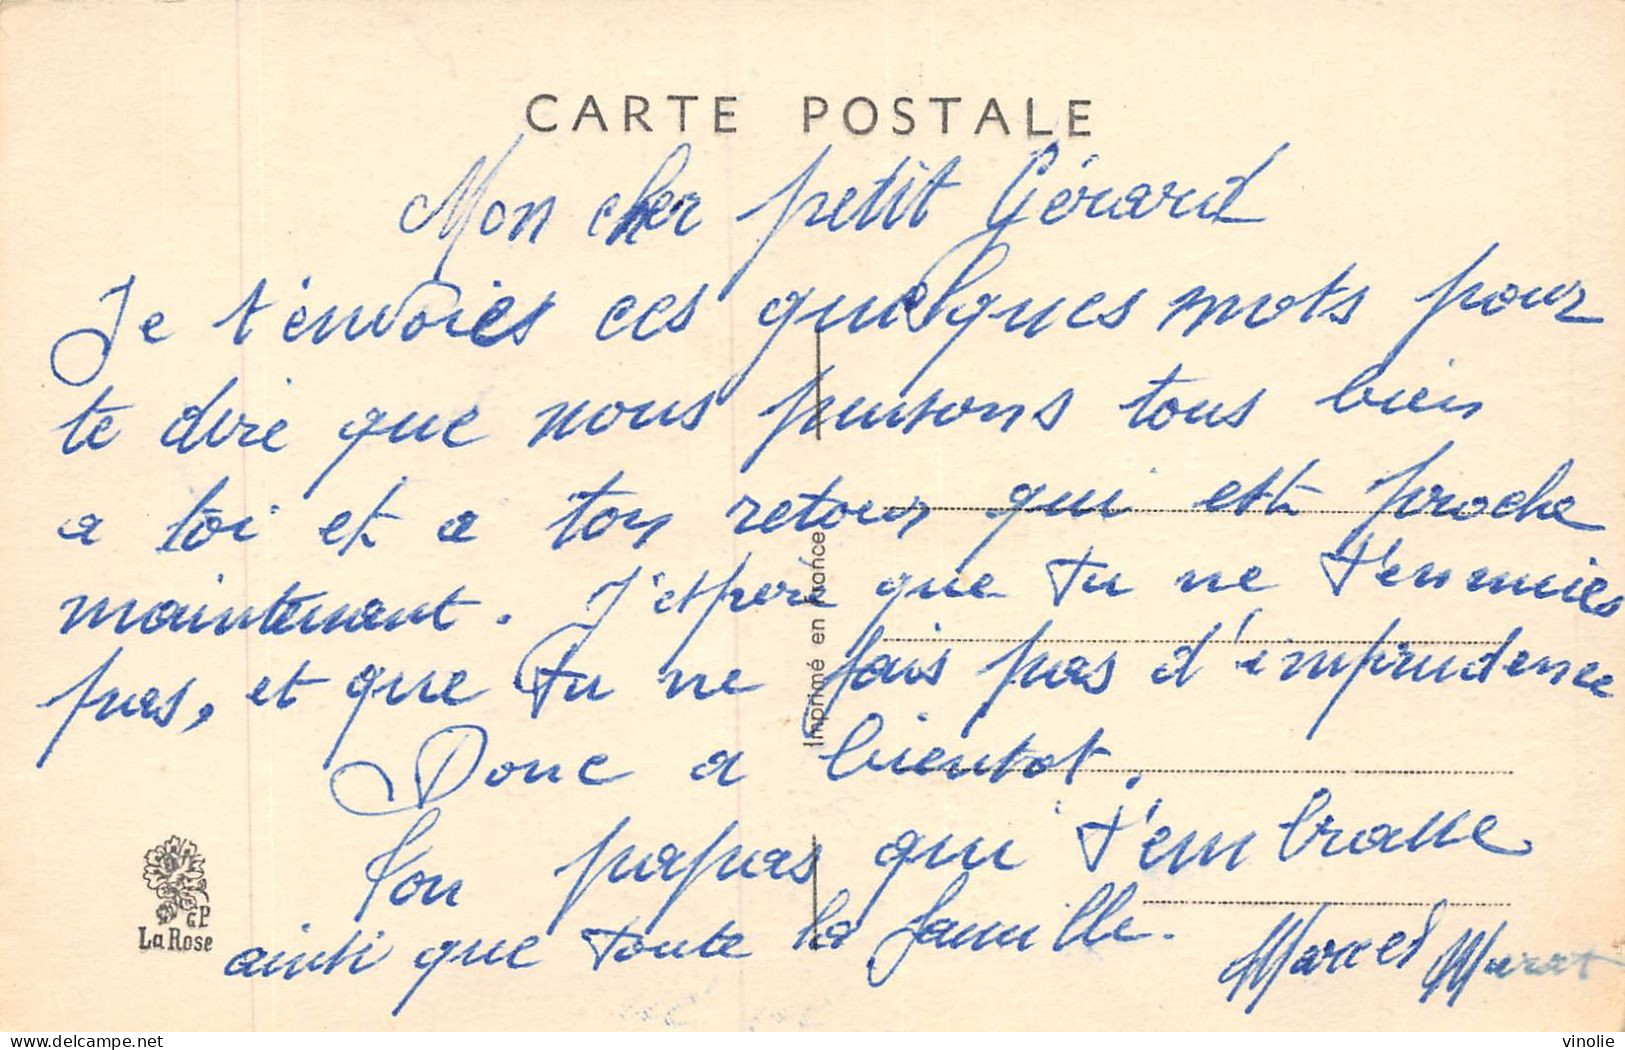 CARTE POSTALE
Mon cher petit Gérard
Je t'envoies ces quelques mots pour
te dire que nous pensons tous bien
a toi et a ton retour qui est proche
maintenant. J'espere que tu ne t'ennuies
pas, et que tu ne fais pas d'imprudence
Donc a bientot.
Ton papas qui t'embrasse
ainsi que toute la famille.
Marcel
Imprimé en France
GP
La Rose
delcampe.net
vinolie